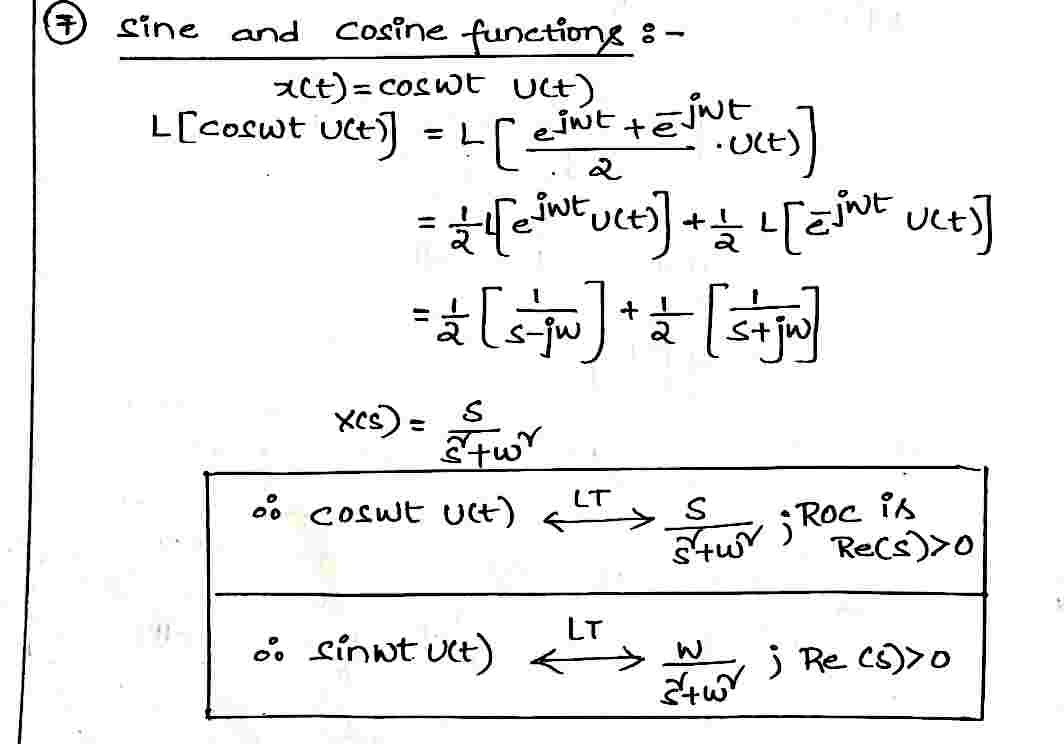 ⑦ Sine and cosine functions :-
x(t) = coswt u(t)
L[coswt u(t)] = L[ (e^{jwt} + e^{-jwt})/2 . u(t)]
= 1/2 L[e^{jwt} u(t)] + 1/2 L[e^{-jwt} u(t)]
= 1/2 [1/(s-jw)] + 1/2 [1/(s+jw)]
X(s) = s/(s²+w²)
∴ coswt u(t) ⟷^{LT} s/(s²+w²) ; ROC is Re(s)>0
∴ sinwt u(t) ⟷^{LT} w/(s²+w²) ; Re(s)>0